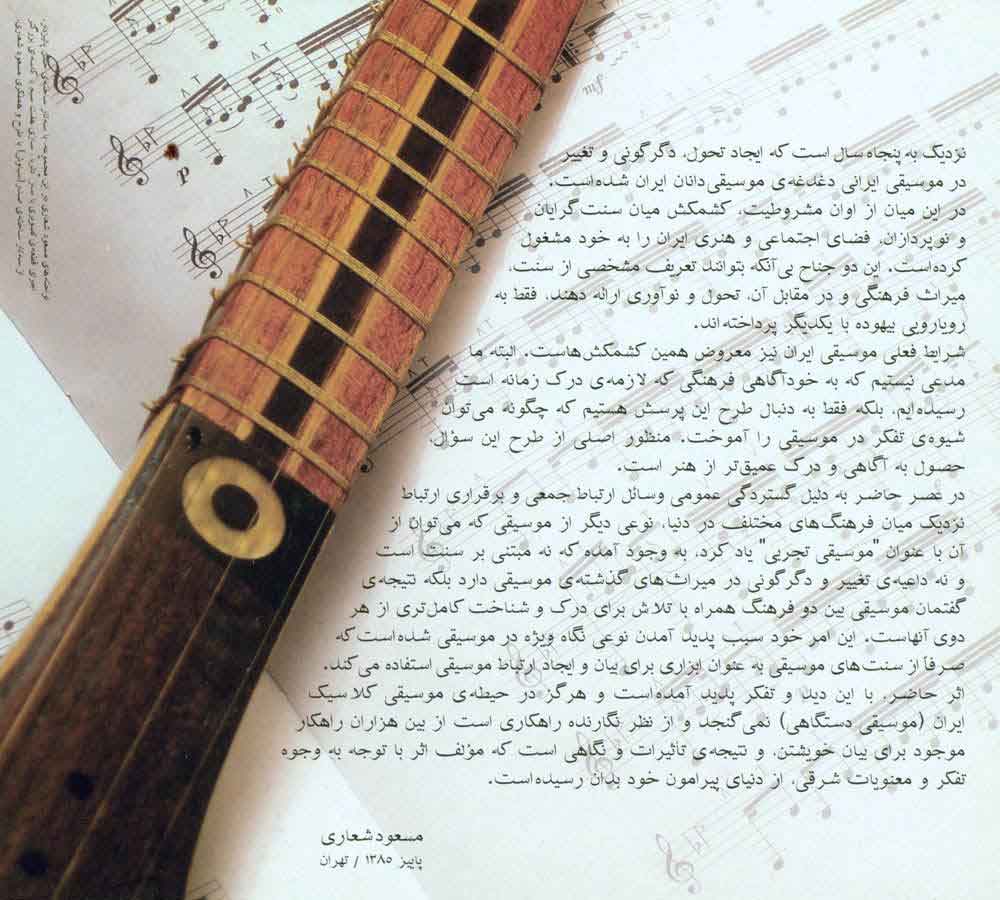 نزدیک به پنجاه سال است که ایجاد تحول، دگرگونی و تغییر
در موسیقی ایرانی دغدغه‌ی موسیقی‌دانان ایران شده‌است.
در این میان از اوان مشروطیت، کشمکش میان سنت‌گرایان
و نوپردازان، فضای اجتماعی و هنری ایران را به خود مشغول
کرده‌است. این دو جناح بی‌آنکه بتوانند تعریف مشخصی از سنت،
میراث فرهنگی و در مقابل آن، تحول و نوآوری ارائه دهند، فقط به
رویارویی بیهوده با یکدیگر پرداخته‌اند.
شرایط فعلی موسیقی ایران نیز معروض همین کشمکش‌هاست. البته ما
مدعی نیستیم که به خودآگاهی فرهنگی که لازمه‌ی درک زمانه است
رسیده‌ایم، بلکه فقط به دنبال طرح این پرسش هستیم که چگونه می‌توان
شیوه‌ی تفکر در موسیقی را آموخت. منظور اصلی از طرح این سؤال،
حصول به آگاهی و درک عمیق‌تر از هنر است.
در عصر حاضر به دلیل گستردگی عمومی وسائل ارتباط جمعی و برقراری ارتباط
نزدیک میان فرهنگ‌های مختلف در دنیا، نوعی دیگر از موسیقی که می‌توان از
آن با عنوان "موسیقی تجربی" یاد کرد، به وجود آمده که نه مبتنی بر سنت است
و نه داعیه‌ی تغییر و دگرگونی در میراث‌های گذشته‌ی موسیقی دارد بلکه نتیجه‌ی
گفتمان موسیقی بین دو فرهنگ همراه با تلاش برای درک و شناخت کامل‌تری از هر
دوی آنهاست. این امر خود سبب پدید آمدن نوعی نگاه ویژه در موسیقی شده‌است که
صرفاً از سنت‌های موسیقی به عنوان ابزاری برای بیان و ایجاد ارتباط موسیقی استفاده می‌کند.
اثر حاضر، با این دید و تفکر پدید آمده‌است و هرگز در حیطه‌ی موسیقی کلاسیک
ایران (موسیقی دستگاهی) نمی‌گنجد و از نظر نگارنده راهکاری است از بین هزاران راهکار
موجود برای بیان خویشتن، و نتیجه‌ی تأثیرات و نگاهی است که مؤلف اثر با توجه به وجوه
تفکر و معنویات شرقی، از دنیای پیرامون خود بدان رسیده‌است.
مسعود شعاری
پاییز ۱۳۸۵ / تهران
mf
P